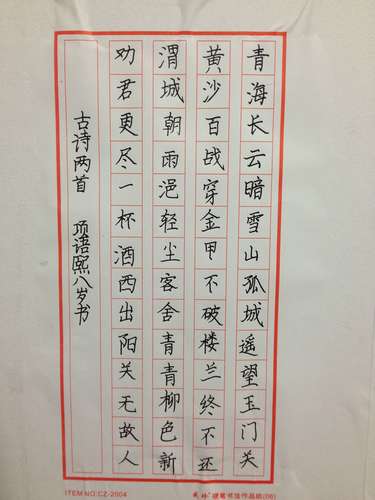 青海长云暗雪山孤城遥望玉门关
黄沙百战穿金甲不破楼兰终不还
渭城朝雨浥轻尘客舍青青柳色新
劝君更尽一杯酒西出阳关无故人
古诗两首 项语熙八岁书
ITEM NO.CZ-2504